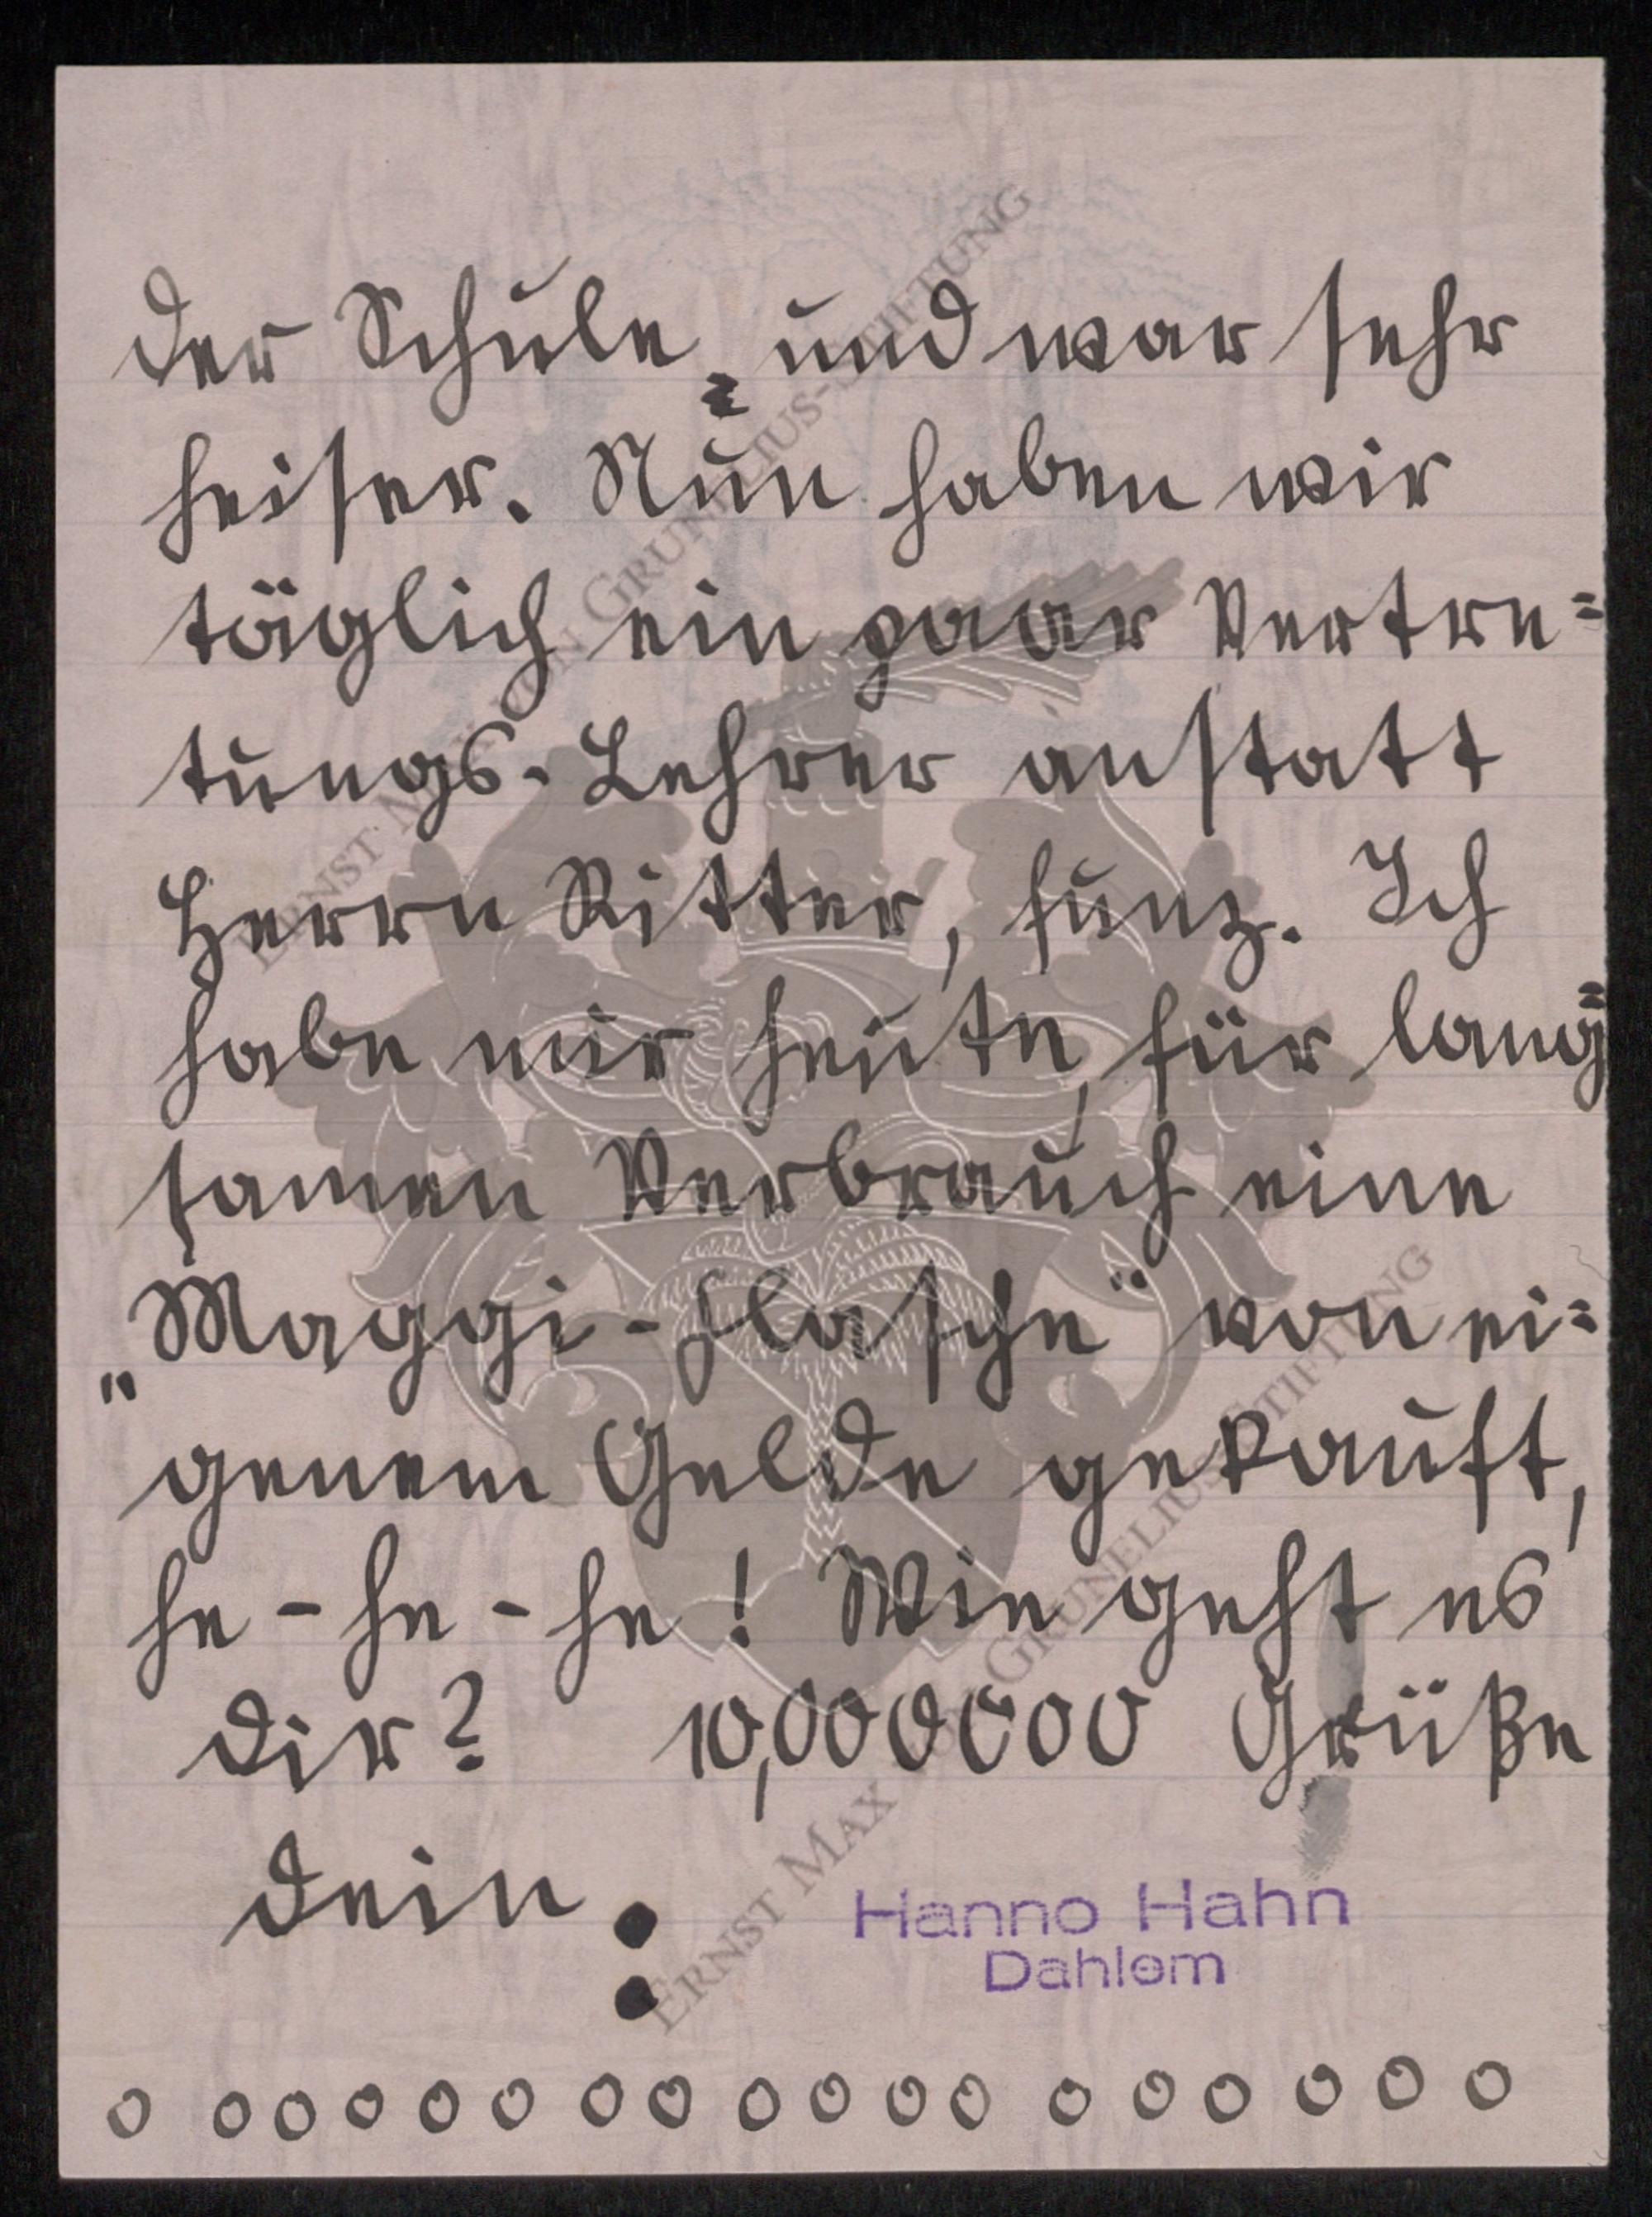 der Schule, und war sehr
heiser. Nun haben wir
täglich ein paar Vertre=
tungs-Lehrer anstatt
Herrn Ritter, funz. Ich
habe mir heute, für lang=
samen Verbrauch eine
„Maggi-Flasche“ von ei=
genem Gelde gekauft,
he-he-he! Wie geht es
dir? 10,000000 Grüße
dein:
Hanno Hahn
Dahlem
ERNST MAX VON GRUNELIUS-STIFTUNG
ERNST MAX VON GRUNELIUS-STIFTUNG